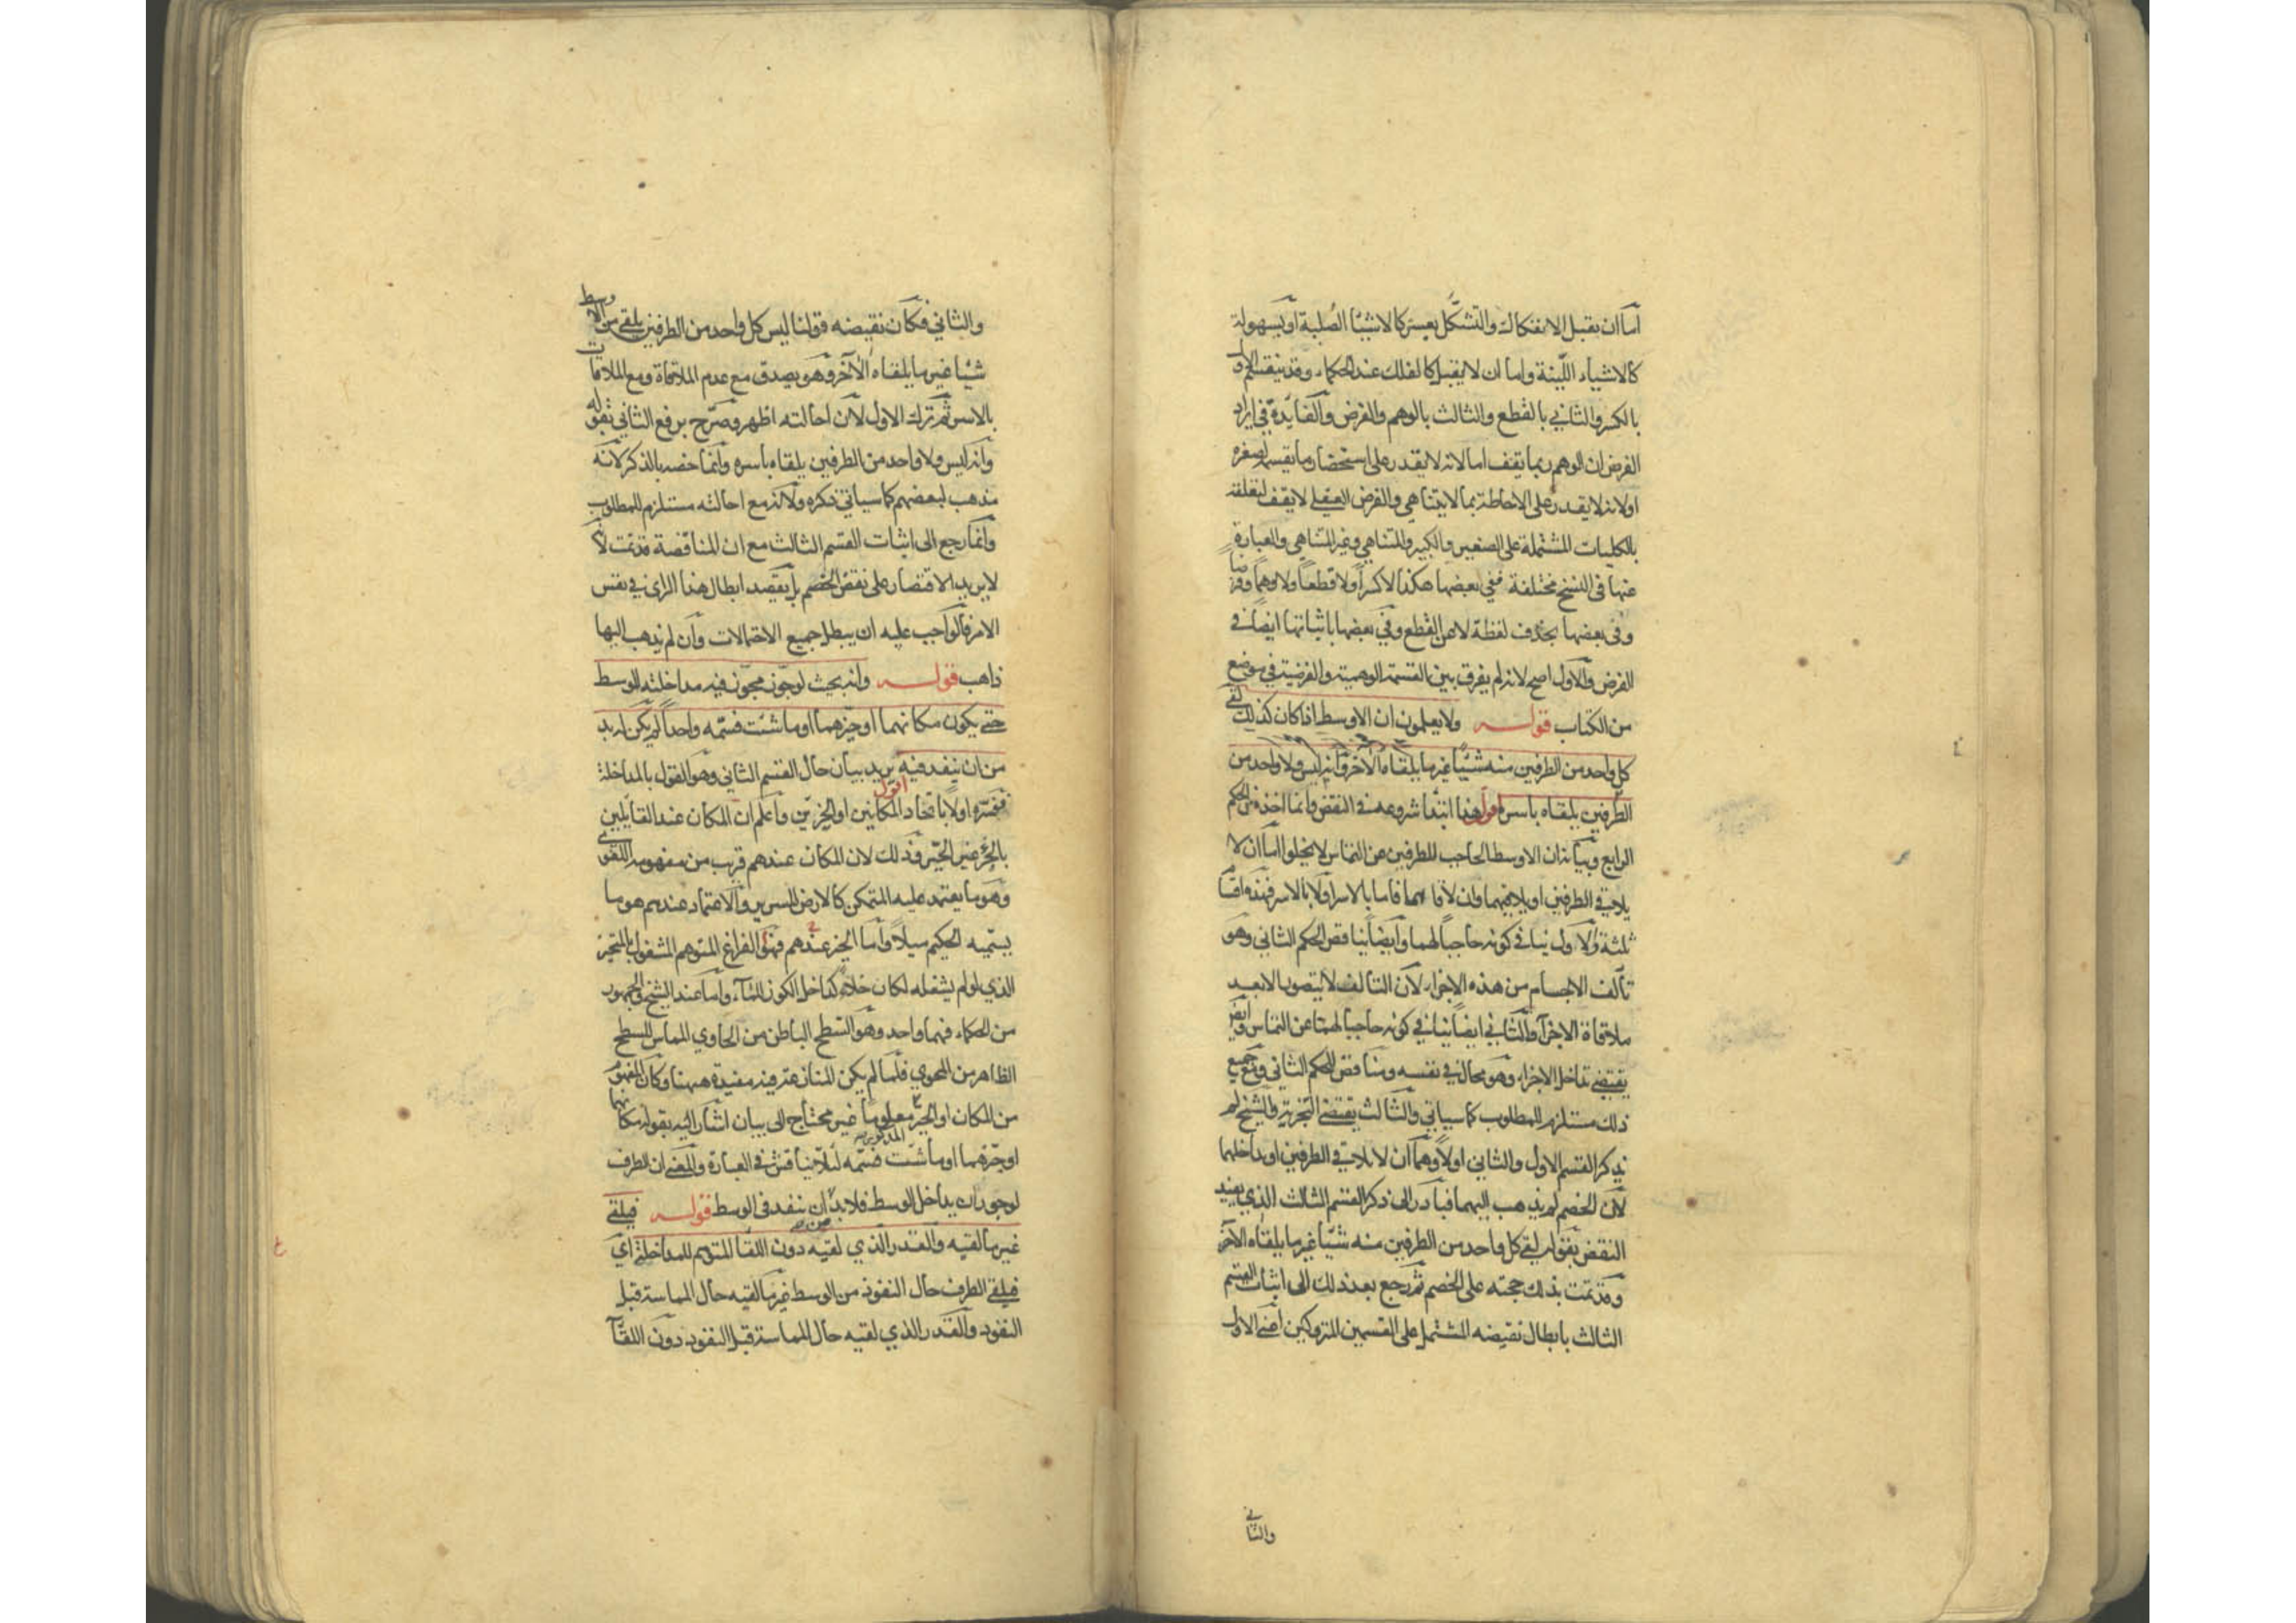 اما ان يقبل الانفكاك والتشكل بعسر كالاشياء الصلبة او بسهولة
كالاشياء اللينة واما ان لا يقبل كالفلك عند الحكماء وقد ينقسم الاول
بالكسر والثاني بالقطع والثالث بالوهم والفرض والفائدة في ايراد
الفرض ان الوهم ربما يقف اما لانه لا يقدر على استحضار ما يقسمه لصغره
او لانه لا يقدر على الاحاطة بما لا يتناهي والفرض العقلي لا يقف لتعلقه
بالكليات المشتملة على الصغير والكبير والمتناهي وغير المتناهي والعبارة
عنها في النسخ مختلفة ففي بعضها هكذا لا كسرا ولا قطعا ولا وهما وفرضا
وفي بعضها بحذف لفظة لا عن القطع وفي بعضها باثباتها ايضا في
الفرض والاول اصح لانه لم يفرق بين القسمة الوهمية والفرضية في موضع
من الكتاب قوله ولا يعلمون ان الاوسط اذا كان كذلك لقي
كل واحد من الطرفين منه شيئا غير ما يلقاه الاخر وانه ليس ولا واحد من
الطرفين يلقاه باسره اقول هذا ابتدا شروعه في النقض وانما اخذه من الحكم
الرابع وبيانه ان الاوسط الحاجب للطرفين عن التماس لا يخلوا اما ان لا
يلاقي الطرفين او يلاقيهما وان لاقاهما فاما بالاسر او لا بالاسر فهذه اقسام
ثلثة والاول ينافي كونه حاجبا لهما وايضا يناقض الحكم الثاني وهو
تألف الاجسام من هذه الاجزاء لان التألف لا يتصور الا بعد
ملاقاة الاجزا والثاني ايضا ينافي كونه حاجبا لهما عن التماس وايض
يقتضي تداخل الاجزاء وهو محال في نفسه ومناقض للحكم الثاني ومع جميع
ذلك مستلزم للمطلوب كما سياتي والثالث يقتضي التجزية والشيخ لم
يذكر القسم الاول والثاني اولا وهما ان لا يلاقي الطرفين او يداخلهما
لان الخصم لم يذهب اليهما فبادر الى ذكر القسم الثالث الذي يفيد
النقض بقوله لقي كل واحد من الطرفين منه شيئا غير ما يلقاه الاخر
وقد تمت بذلك حجته على الخصم ثم رجع بعد ذلك الى اثبات القسم
الثالث بابطال نقيضه المشتمل على القسمين المتروكين اعني الاول
والثاني
والثاني فكان نقيضه قولنا ليس كل واحد من الطرفين يلقى من الاوسط
شيئا غير ما يلقاه الاخر وهو يصدق مع عدم الملاقاة ومع الملاقات
بالاسر ثم ترك الاول لان احالته اظهر وصرح برفع الثاني بقوله
وانه ليس ولا واحد من الطرفين يلقاه باسره وانما خصه بالذكر لانه
مذهب لبعضهم كما سياتي ذكره ولانه مع احالته مستلزم للمطلوب
وانما رجع الى اثبات القسم الثالث مع ان المناقضة قد تمت لانه
لا يريد الاقتصار على نقض الخصم بل يقصد ابطال هذا الراي في نفس
الامر فالواجب عليه ان يبطل جميع الاحتمالات وان لم يذهب اليها
ذاهب قوله وانه بحيث لو جوز مجوز فيه مداخلته للوسط
حتى يكون مكانهما او حيزهما او ما شئت فسمه واحدا لم يكن له بد
من ان ينفذ فيه اقول يريد بيان حال القسم الثاني وهو القول بالمداخلة
ففسره اولا باتحاد المكانين او الحيزين واعلم ان المكان عند القايلين
بالجزء غير الحيز وذلك لان المكان عندهم قريب من مفهومه اللغوي
وهو ما يعتمد عليه المتمكن كالارض للسرير والاعتماد عندهم هو ما
يسميه الحكيم ميلا واما الحيز عندهم فهو الفراغ المتوهم المشغول بالمتحيز
الذي لو لم يشغله لكان خلاء كداخل الكوز للماء واما عند الشيخ والجمهور
من الحكماء فهما واحد وهو السطح الباطن من الحاوي المماس للسطح
الظاهر من المحوي فلما لم يكن للمنازعة فيه مفيدة ههنا وكان المفهوم
من المكان او الحيز معلوما غير محتاج الى بيان اشار اليه بقوله مكانهما
او حيزهما او ما شئت فسمه لئلا يناقش في العبارة والمعنى ان الطرف المذكور
لو جوز ان يداخل الوسط فلا بد ان ينفذ في الوسط قوله فيلقي
غير ما لقيه والقدر الذي لقيه دون اللقا المتوهم للمداخلة اي
فيلقي الطرف حال النفوذ من الوسط غير ما لقيه حال المماسة قبل
النفوذ والقدر الذي لقيه حال المماسة قبل النفوذ دون اللقآ